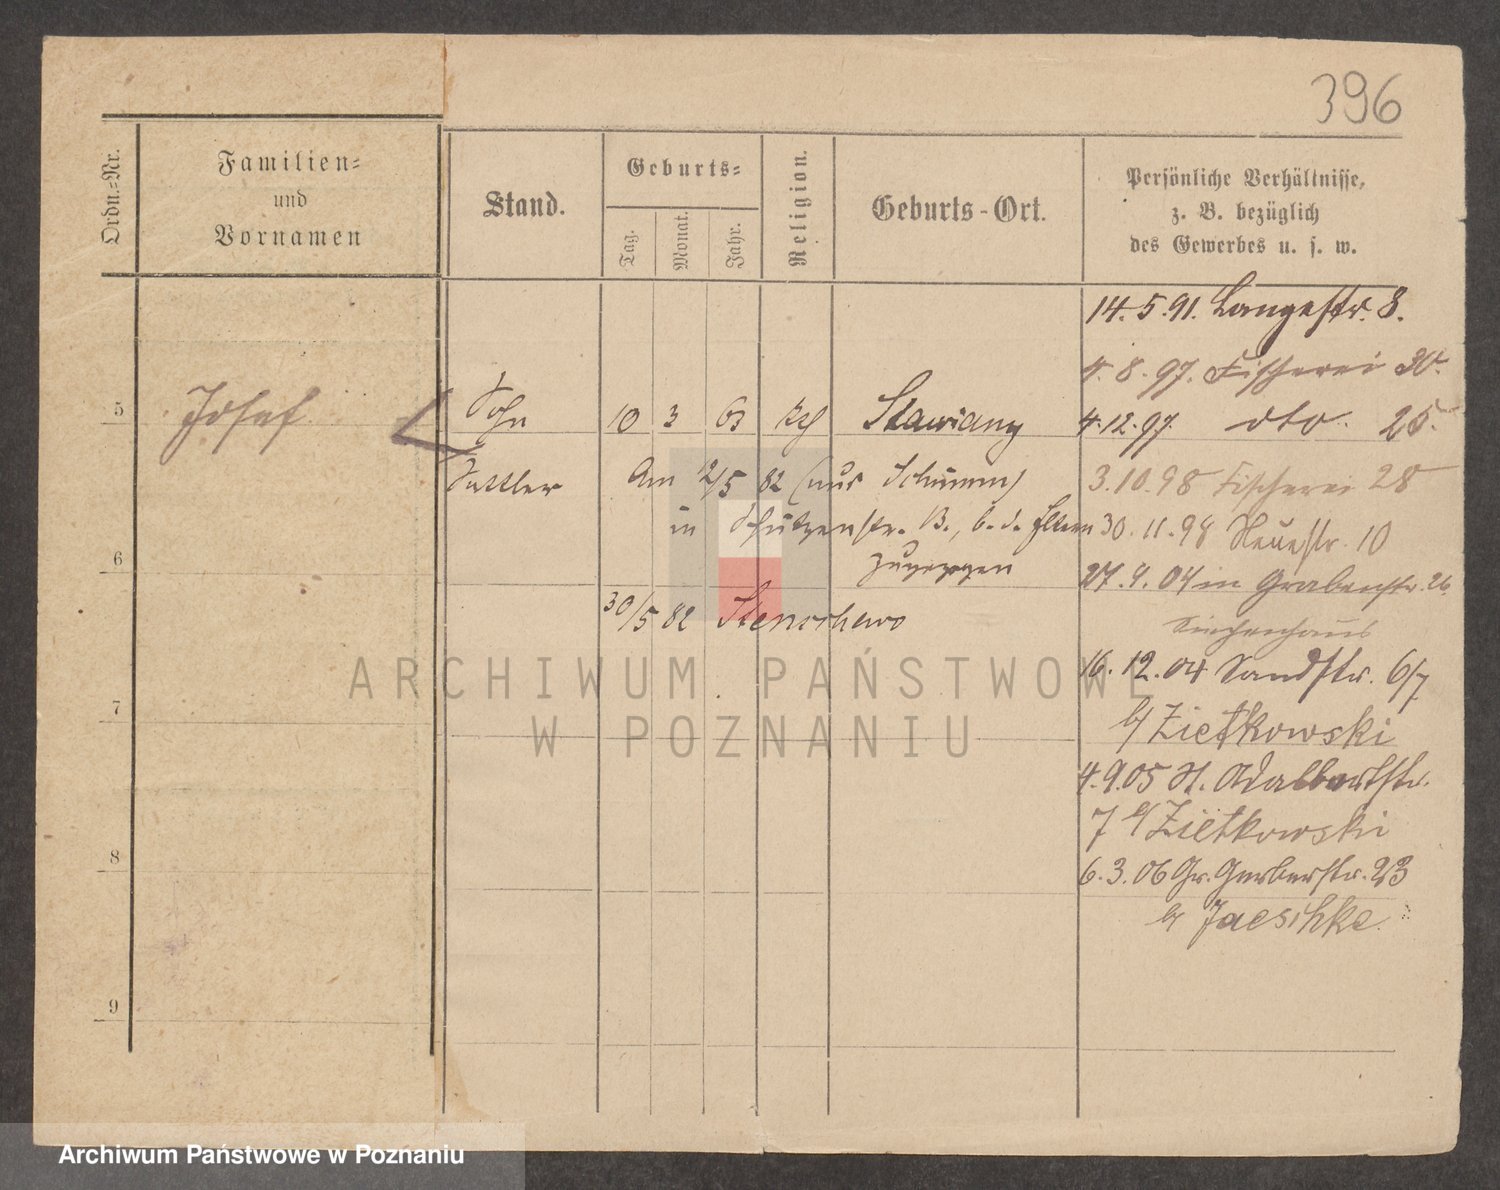 396
Ordn.-Nr.
Familien-
und
Vornamen
Stand.
Geburts-
Tag.
Monat.
Jahr.
Religion.
Geburts-Ort.
Persönliche Verhältnisse,
z. B. bezüglich
des Gewerbes u. s. w.
14.5.91. Langestr. 8.
4.8.97. Fischerei 30.
5 Josef Sohn 10 3 63 kth Stawiany
4.12.97. dto. 25.
Sattler Am 12/5 82 (aus Schrimm)
3.10.98 Fischerei 28
in Schützenstr. 13., b. d. Eltern
30.11.98 Neuestr. 10
6 zugezogen
27.4.04 in Grabenstr. 26.
Siechenhaus
30/5 82 Stenschewo
16.12.04 Sandstr. 6/7
7 b/ Zietkowski
4.9.05 St. Adalbertstr.
7 b/ Zietkowski
8
6.3.06 Gr. Gerberstr. 23
b/ Jaeschke.
9
ARCHIWUM PAŃSTWOWE
W POZNANIU
Archiwum Państwowe w Poznaniu